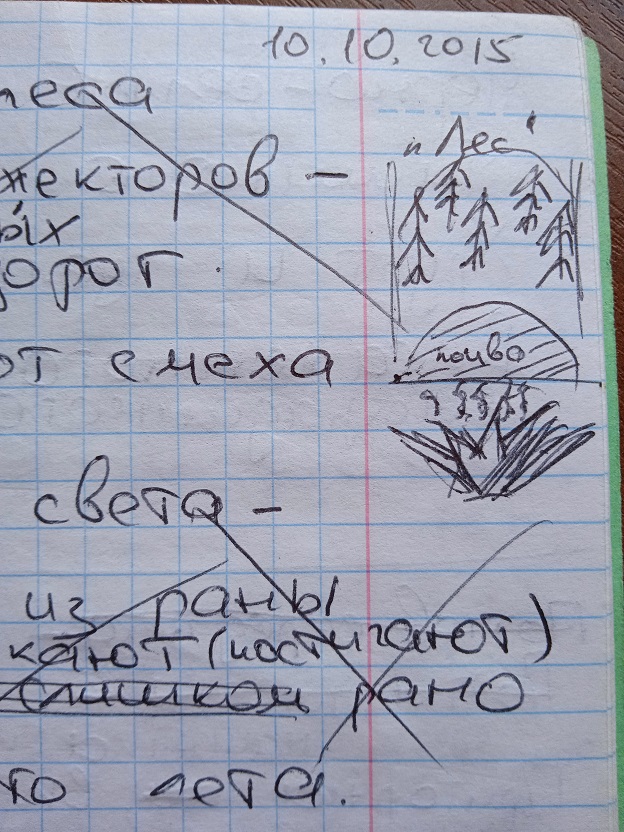 10.10.2015
леса
"Лес"
жекторов –
ых
дорог.
почво
от смеха
света –
из раны
кают (постигают)
слишком рано
то лета.